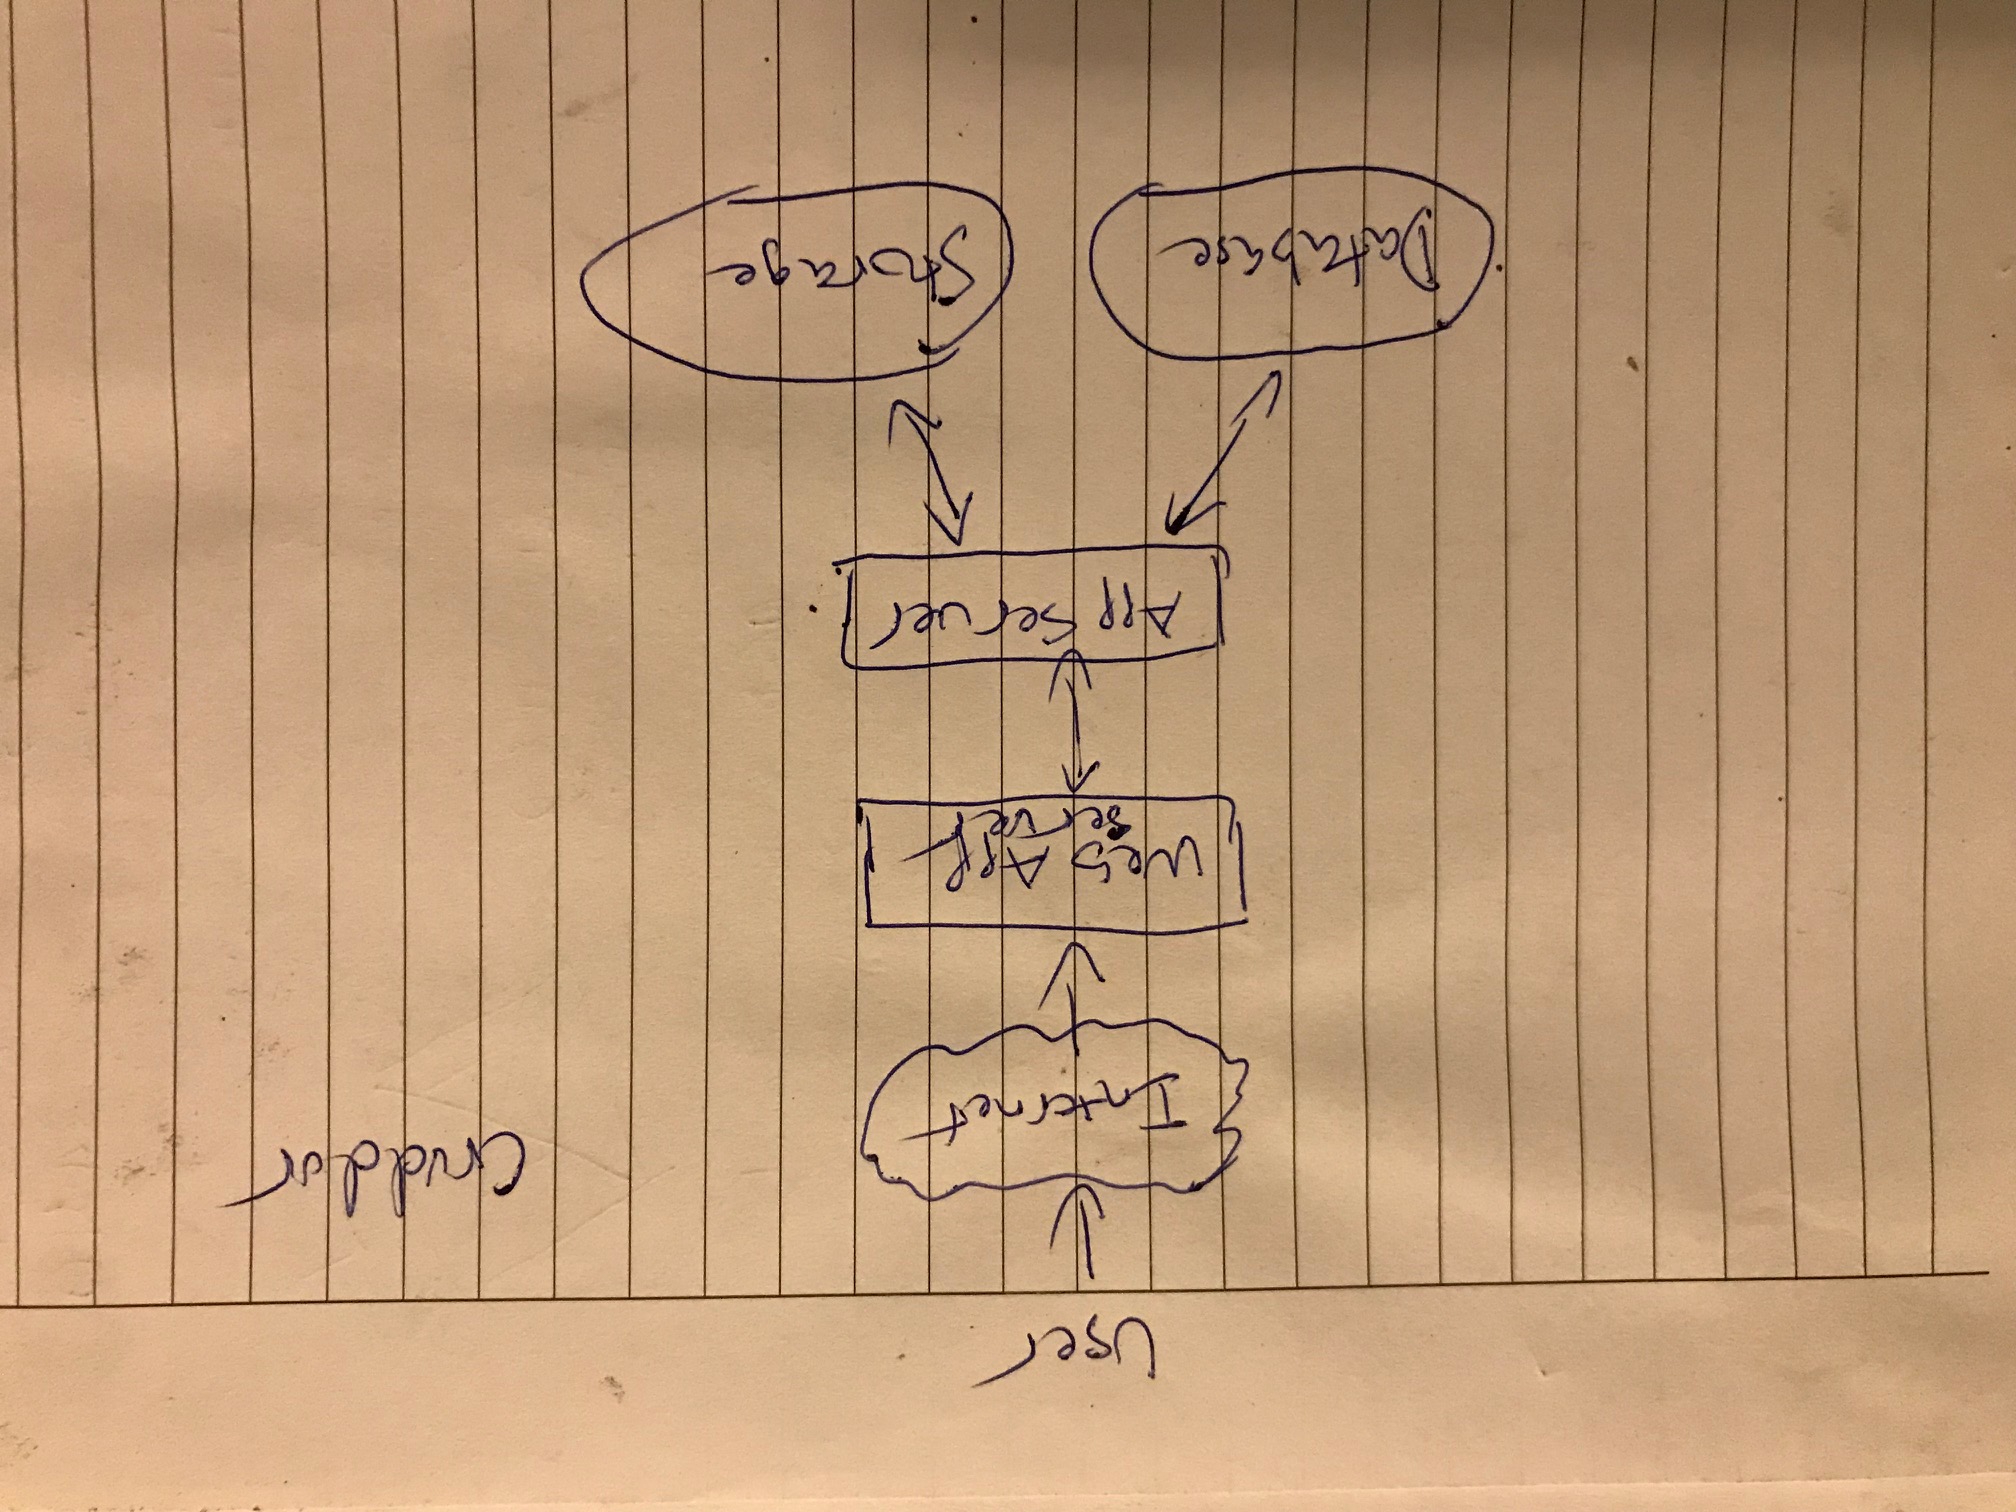 User
Cruddur
Internet
Web App
Server
App Server
Database
Storage